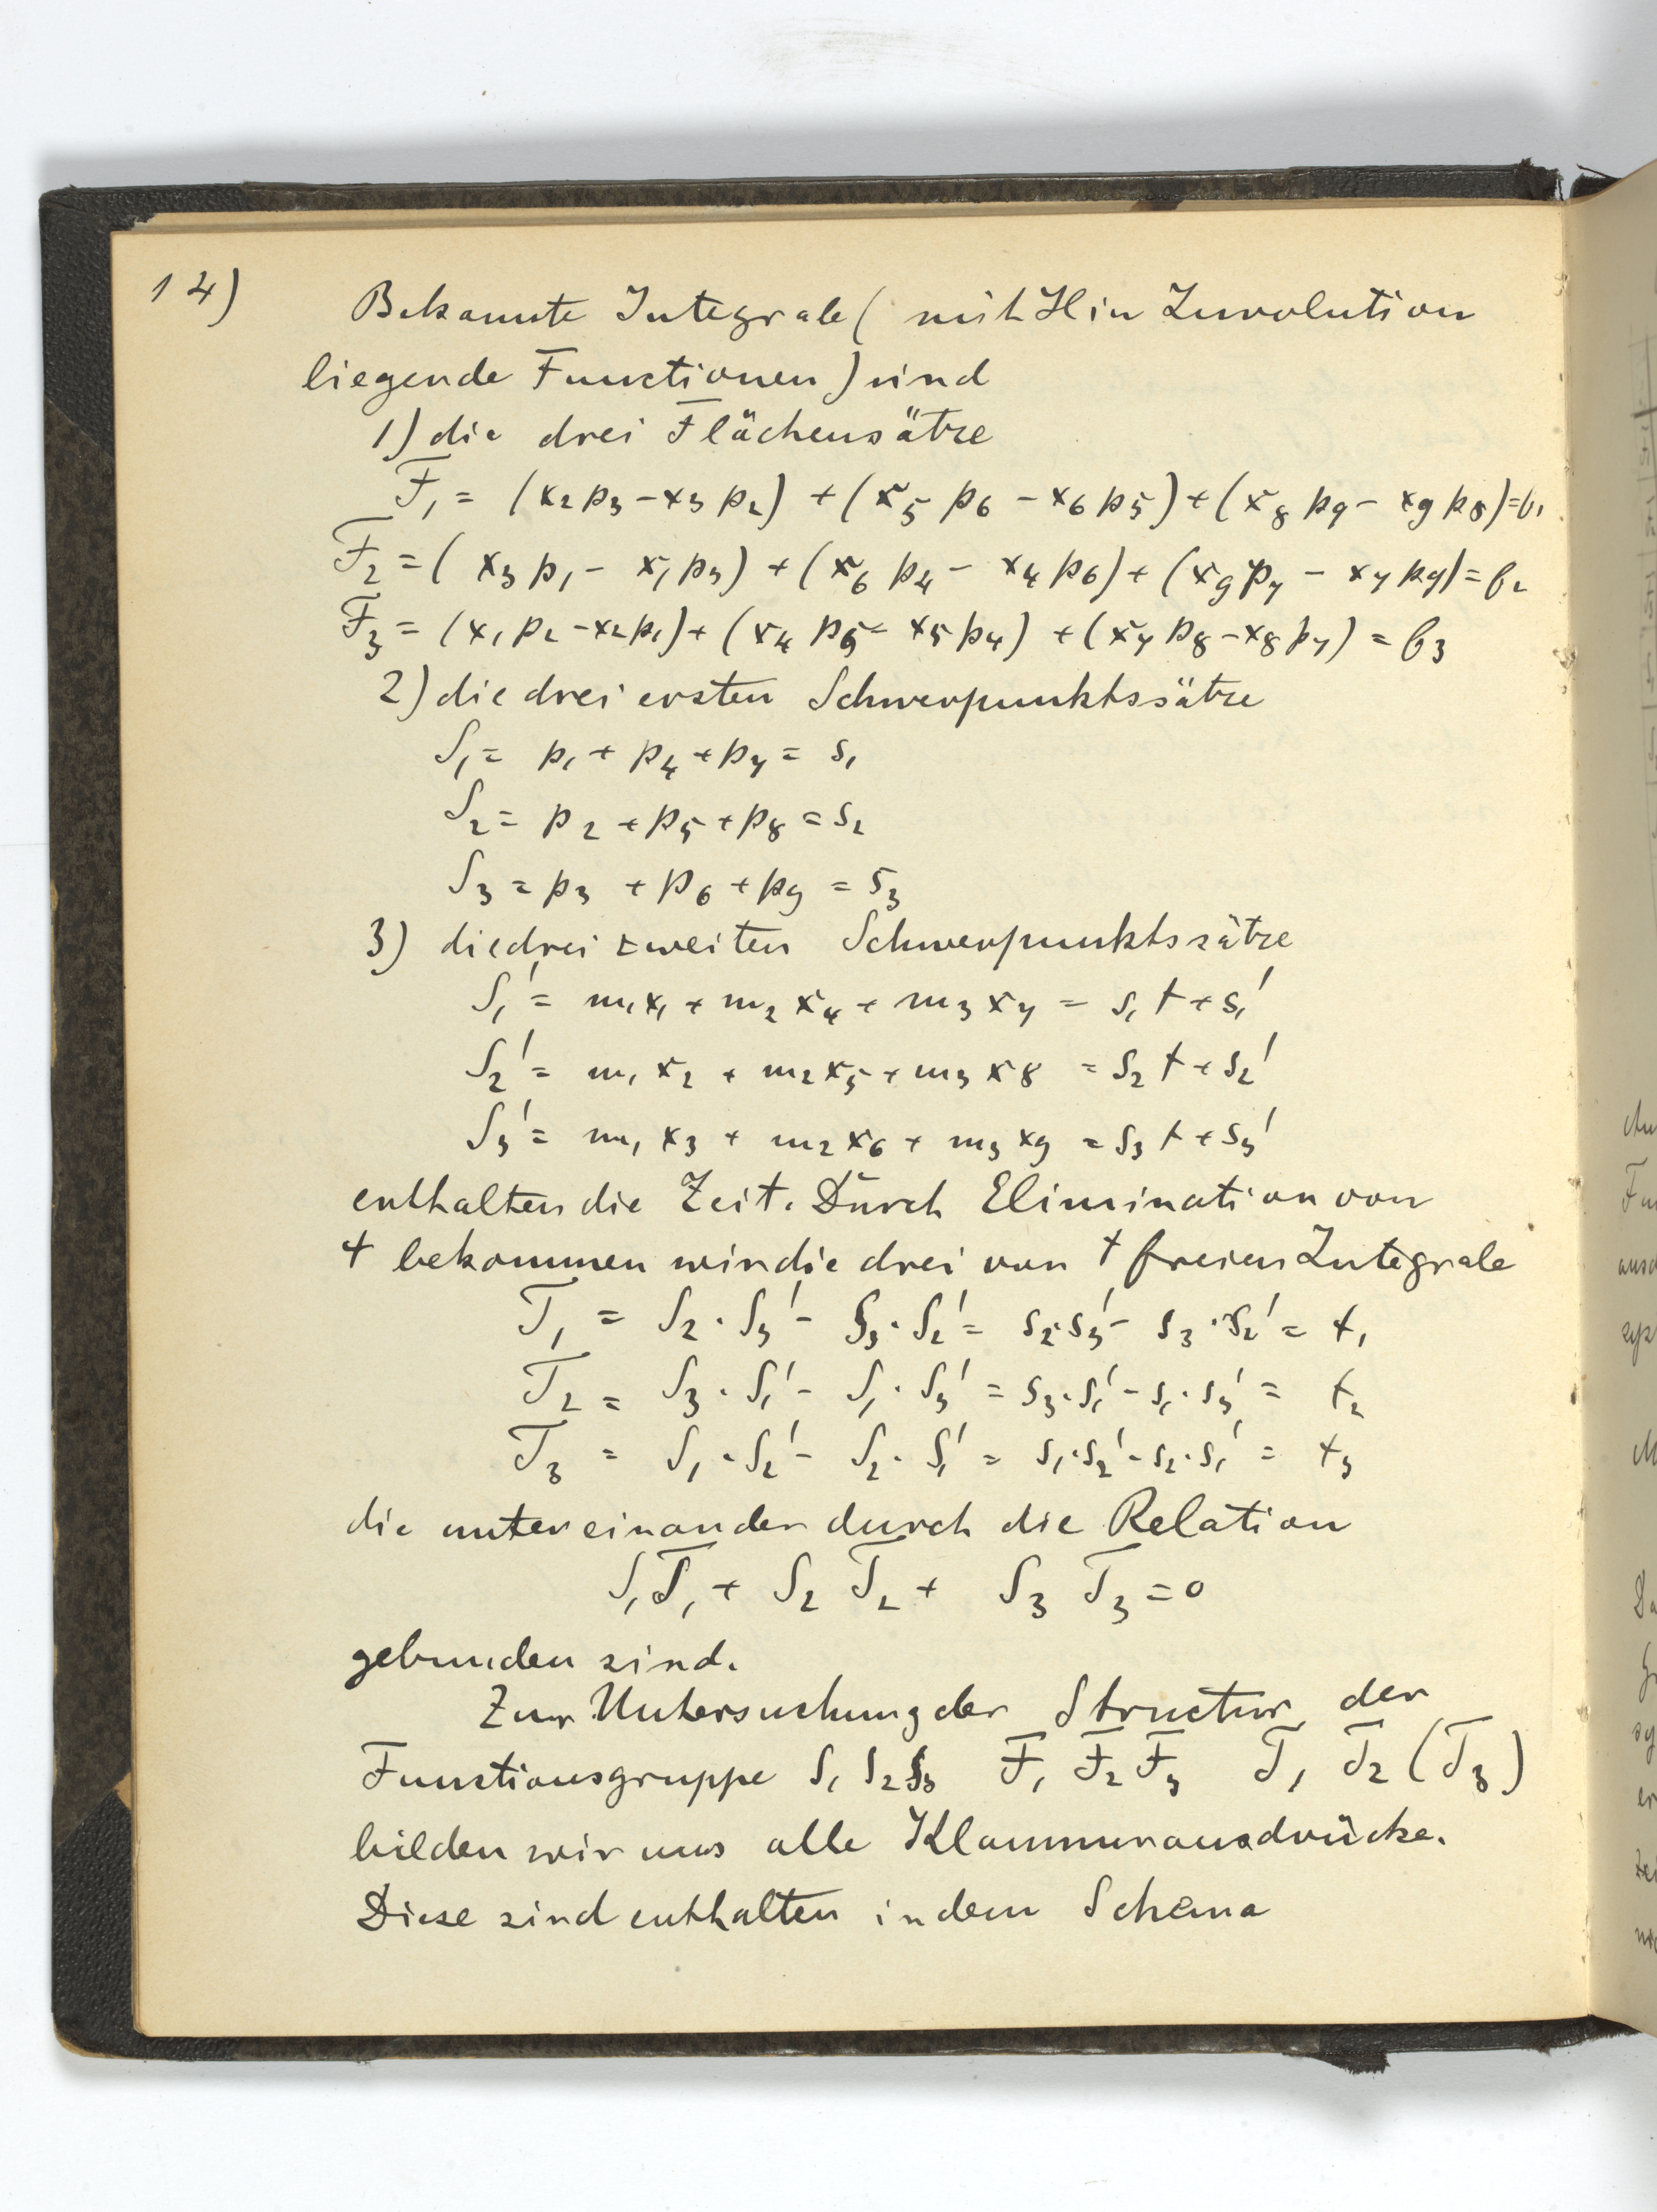 14)
Bekannte Integrale (mit H in Involution
liegende Functionen) sind
1) die drei Flächensätze
F₁ = (x₂p₃-x₃p₂) + (x₅p₆-x₆p₅) + (x₈p₉-x₉p₈) = f₁
F₂ = (x₃p₁-x₁p₃) + (x₆p₄-x₄p₆) + (x₉p₇-x₇p₉) = f₂
F₃ = (x₁p₂-x₂p₁) + (x₄p₅-x₅p₄) + (x₇p₈-x₈p₇) = f₃
2) die drei ersten Schwerpunktssätze
S₁ = p₁ + p₄ + p₇ = s₁
S₂ = p₂ + p₅ + p₈ = s₂
S₃ = p₃ + p₆ + p₉ = s₃
3) die drei zweiten Schwerpunktssätze
S₁' = m₁x₁ + m₂x₄ + m₃x₇ = s₁t + s₁'
S₂' = m₁x₂ + m₂x₅ + m₃x₈ = s₂t + s₂'
S₃' = m₁x₃ + m₂x₆ + m₃x₉ = s₃t + s₃'
enthalten die Zeit. Durch Elimination von
t bekommen wir die drei von t freien Integrale
T₁ = S₂·S₃' - S₃·S₂' = s₂·s₃' - s₃·s₂' = t₁
T₂ = S₃·S₁' - S₁·S₃' = s₃·s₁' - s₁·s₃' = t₂
T₃ = S₁·S₂' - S₂·S₁' = s₁·s₂' - s₂·s₁' = t₃
die untereinander durch die Relation
S₁T₁ + S₂T₂ + S₃T₃ = 0
gebunden sind.
Zur Untersuchung der Structur der
Functionsgruppe S₁ S₂ S₃ F₁ F₂ F₃ T₁ T₂ (T₃)
bilden wir uns alle Klammerausdrücke.
Diese sind enthalten in dem Schema